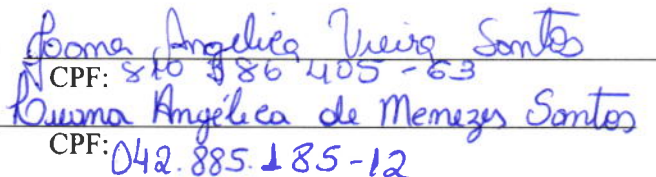 Joana Angelica Vieira Santos
CPF: 810 586 405-63
Luana Angélica de Menezes Santos
CPF: 042.885.185-12